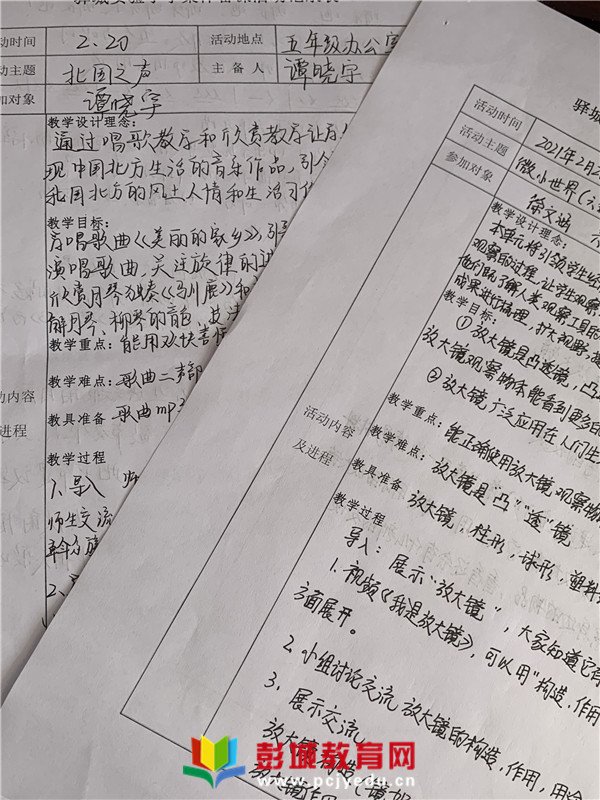 活动时间 2、20 活动地点 五年级办公室
活动主题 北国之声 主备人 谭晓宇
参加对象 谭晓宇
教学设计理念:
通过唱歌教学和欣赏教学让
现中国北方生活的音乐作品,引
我国北方的风土人情和生活习
教学目标:
演唱歌曲《美丽的家乡》,引
演唱歌曲,关注旋律的
欣赏月琴独奏《 》和
解月琴、柳琴的音色、
教学重点:能用欢快
教学难点:歌曲二声部
教具准备 歌曲mp3
动内容
进程
教学过程
1、导入 师
师生交流
2、
驿城
活动时间 2021年2月2
活动主题 微小世界(
参加对象 徐文
教学设计理念:
本单元将引领学生经
观察的过程,让学生观察
他们既了解人类观察工具的
成果进行梳理,扩大视野,
教学目标:
①放大镜是凸透镜,凸
放大镜观察物体能看到更多的
②放大镜广泛应用在人们生
教学重点:能正确使用放大镜观察物
教学难点:放大镜是“凸”“透”镜
教具准备 放大镜,柱形,球形,塑料
活动内容
及进程
教学过程
导入:展示“放大镜”,大家知道它有
1.视频《我是放大镜》,可以用“构造,作用
方面展开。
2.小组讨论交流 放大镜的构造,作用,用途
3.展示交流
放大镜构造(镜
放大镜作用
彭城教育网
www.pcjyedu.cn